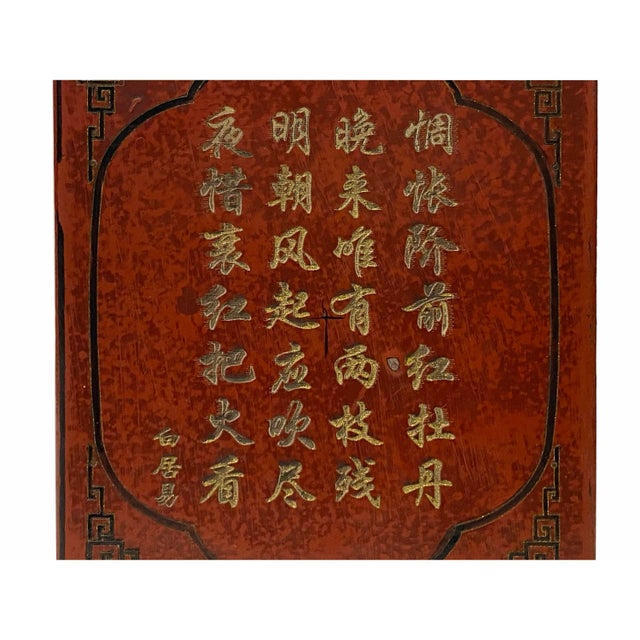 惆怅阶前红牡丹
晚来唯有两枝残
明朝风起应吹尽
夜惜衰红把火看
白居易